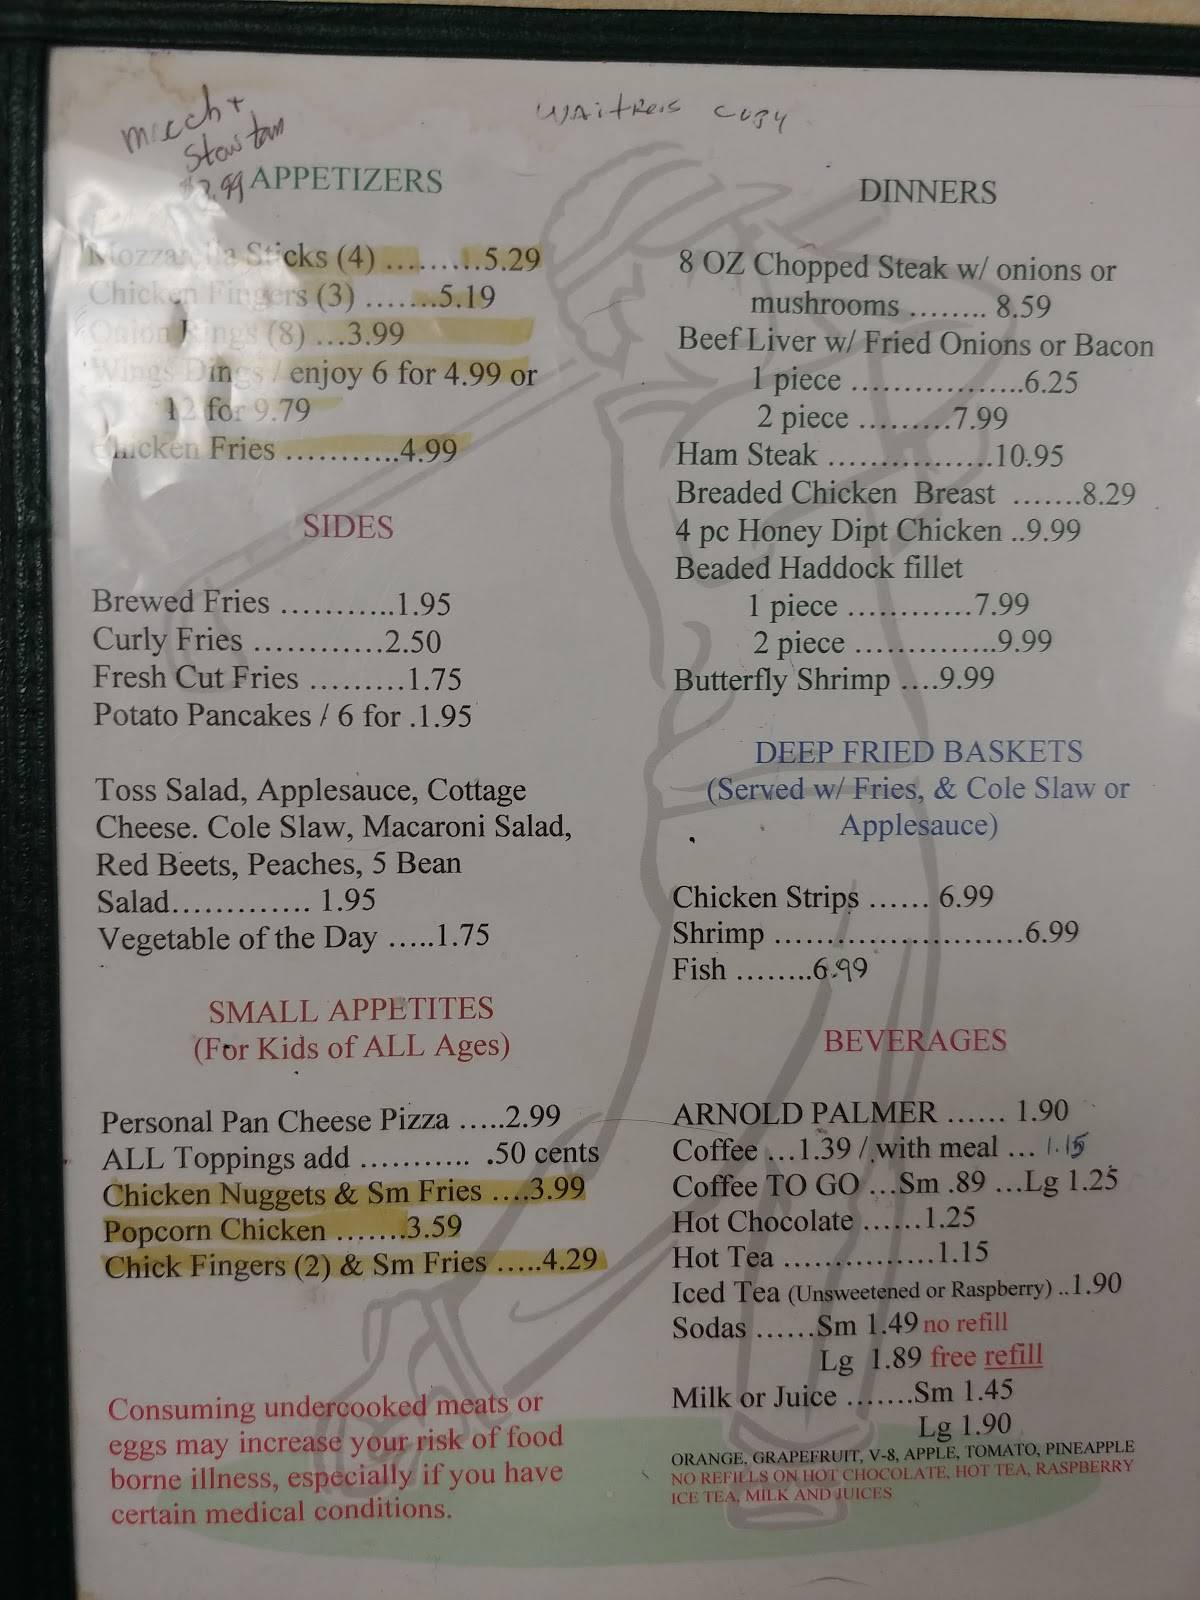 Waitress copy
$3.99
APPETIZERS
Mozzarella Sticks (4) .........5.29
Chicken Fingers (3) .......5.19
Onion Rings (8) ...3.99
Wings Dings / enjoy 6 for 4.99 or
12 for 9.79
Chicken Fries ...........4.99
SIDES
Brewed Fries ...........1.95
Curly Fries ............2.50
Fresh Cut Fries .........1.75
Potato Pancakes / 6 for .1.95
Toss Salad, Applesauce, Cottage
Cheese. Cole Slaw, Macaroni Salad,
Red Beets, Peaches, 5 Bean
Salad............. 1.95
Vegetable of the Day .....1.75
SMALL APPETITES
(For Kids of ALL Ages)
Personal Pan Cheese Pizza .....2.99
ALL Toppings add ........... .50 cents
Chicken Nuggets & Sm Fries ....3.99
Popcorn Chicken .......3.59
Chick Fingers (2) & Sm Fries .....4.29
Consuming undercooked meats or
eggs may increase your risk of food
borne illness, especially if you have
certain medical conditions.
DINNERS
8 OZ Chopped Steak w/ onions or
mushrooms ........ 8.59
Beef Liver w/ Fried Onions or Bacon
1 piece .................6.25
2 piece .........7.99
Ham Steak ................10.95
Breaded Chicken Breast .......8.29
4 pc Honey Dipt Chicken ..9.99
Beaded Haddock fillet
1 piece ............7.99
2 piece ..............9.99
Butterfly Shrimp ....9.99
DEEP FRIED BASKETS
(Served w/ Fries, & Cole Slaw or
Applesauce)
Chicken Strips ...... 6.99
Shrimp ........................6.99
Fish ........6.99
BEVERAGES
ARNOLD PALMER ...... 1.90
Coffee ...1.39 / with meal ... 1.15
Coffee TO GO ...Sm .89 ...Lg 1.25
Hot Chocolate ......1.25
Hot Tea ...............1.15
Iced Tea (Unsweetened or Raspberry) ..1.90
Sodas ......Sm 1.49 no refill
Lg 1.89 free refill
Milk or Juice .......Sm 1.45
Lg 1.90
ORANGE, GRAPEFRUIT, V-8, APPLE, TOMATO, PINEAPPLE
NO REFILLS ON HOT CHOCOLATE, HOT TEA, RASPBERRY
ICE TEA, MILK AND JUICES